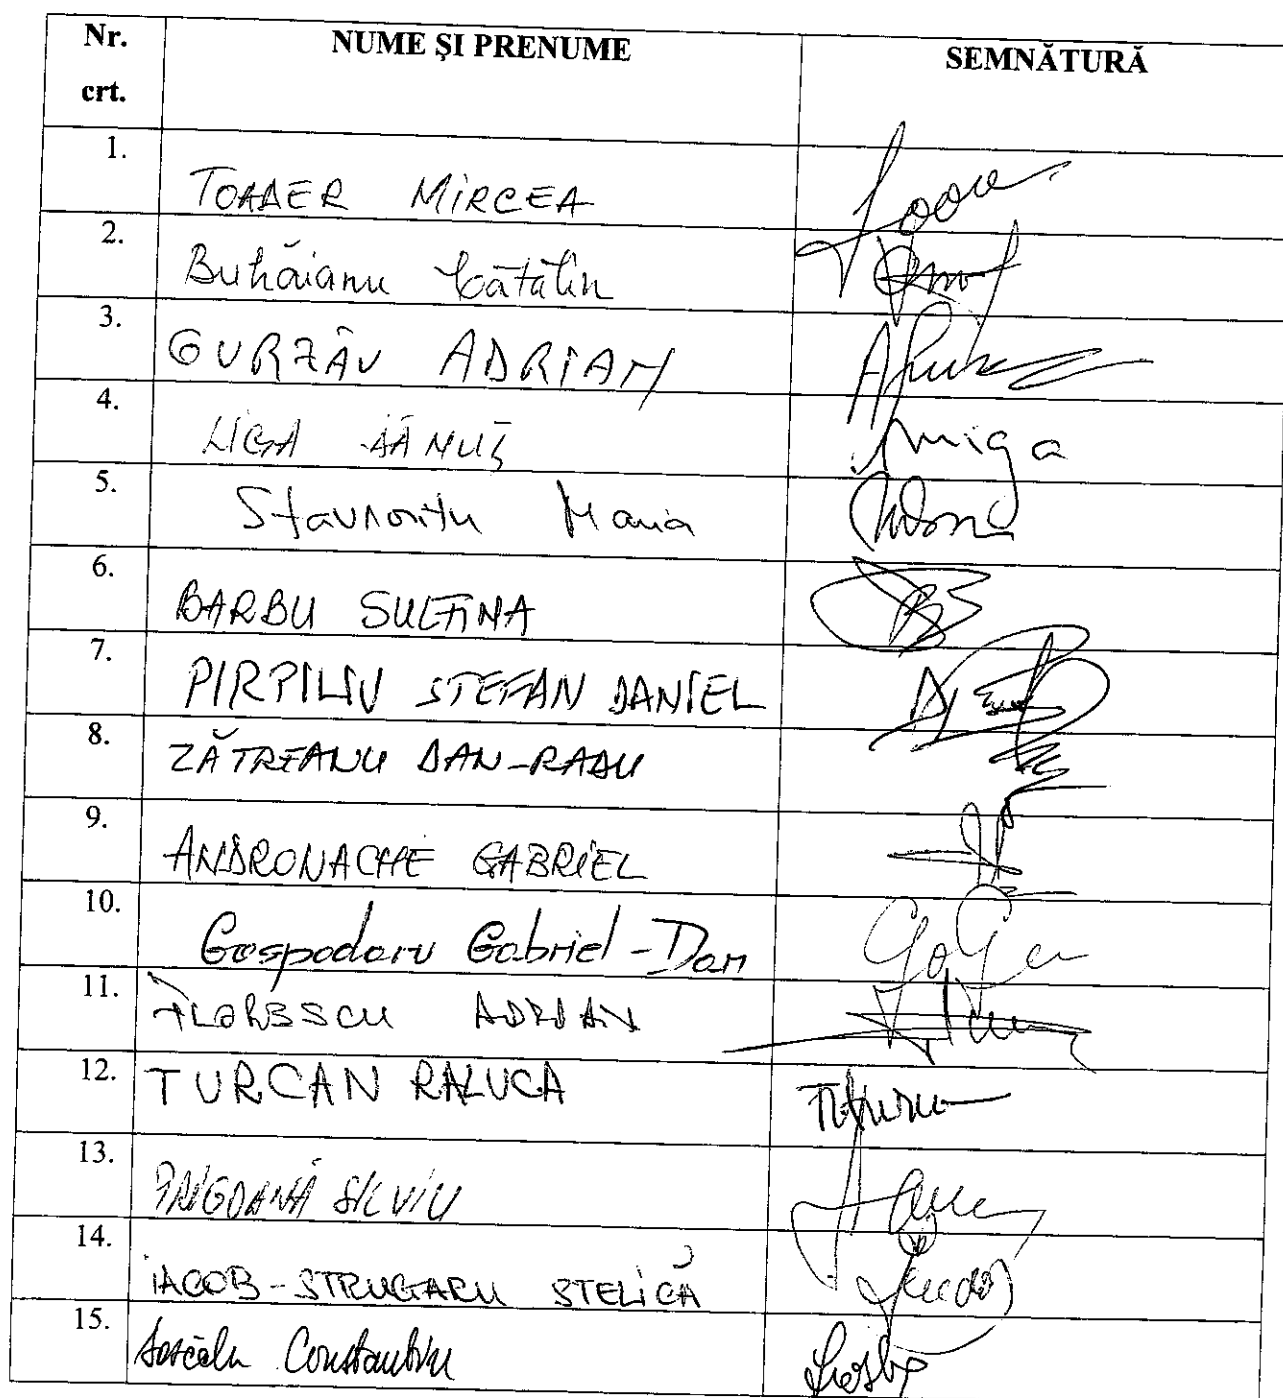 Nr. crt. NUME ȘI PRENUME SEMNĂTURĂ
1. TOADER MIRCEA
2. Buhăianu Cătălin
3. GURZĂU ADRIAN
4. LIGA DĂNUȚ
5. Stavrositu Maria
6. BARBU SULFINA
7. PIRPILIU STEFAN DANIEL
8. ZĂTREANU DAN-RADU
9. ANDRONACHE GABRIEL
10. Gospodaru Gabriel-Dan
11. FLORESCU ADRIAN
12. TURCAN RALUCA
13. PRIGOANĂ SILVIU
14. IACOB-STRUGARU STELICĂ
15. Constantin